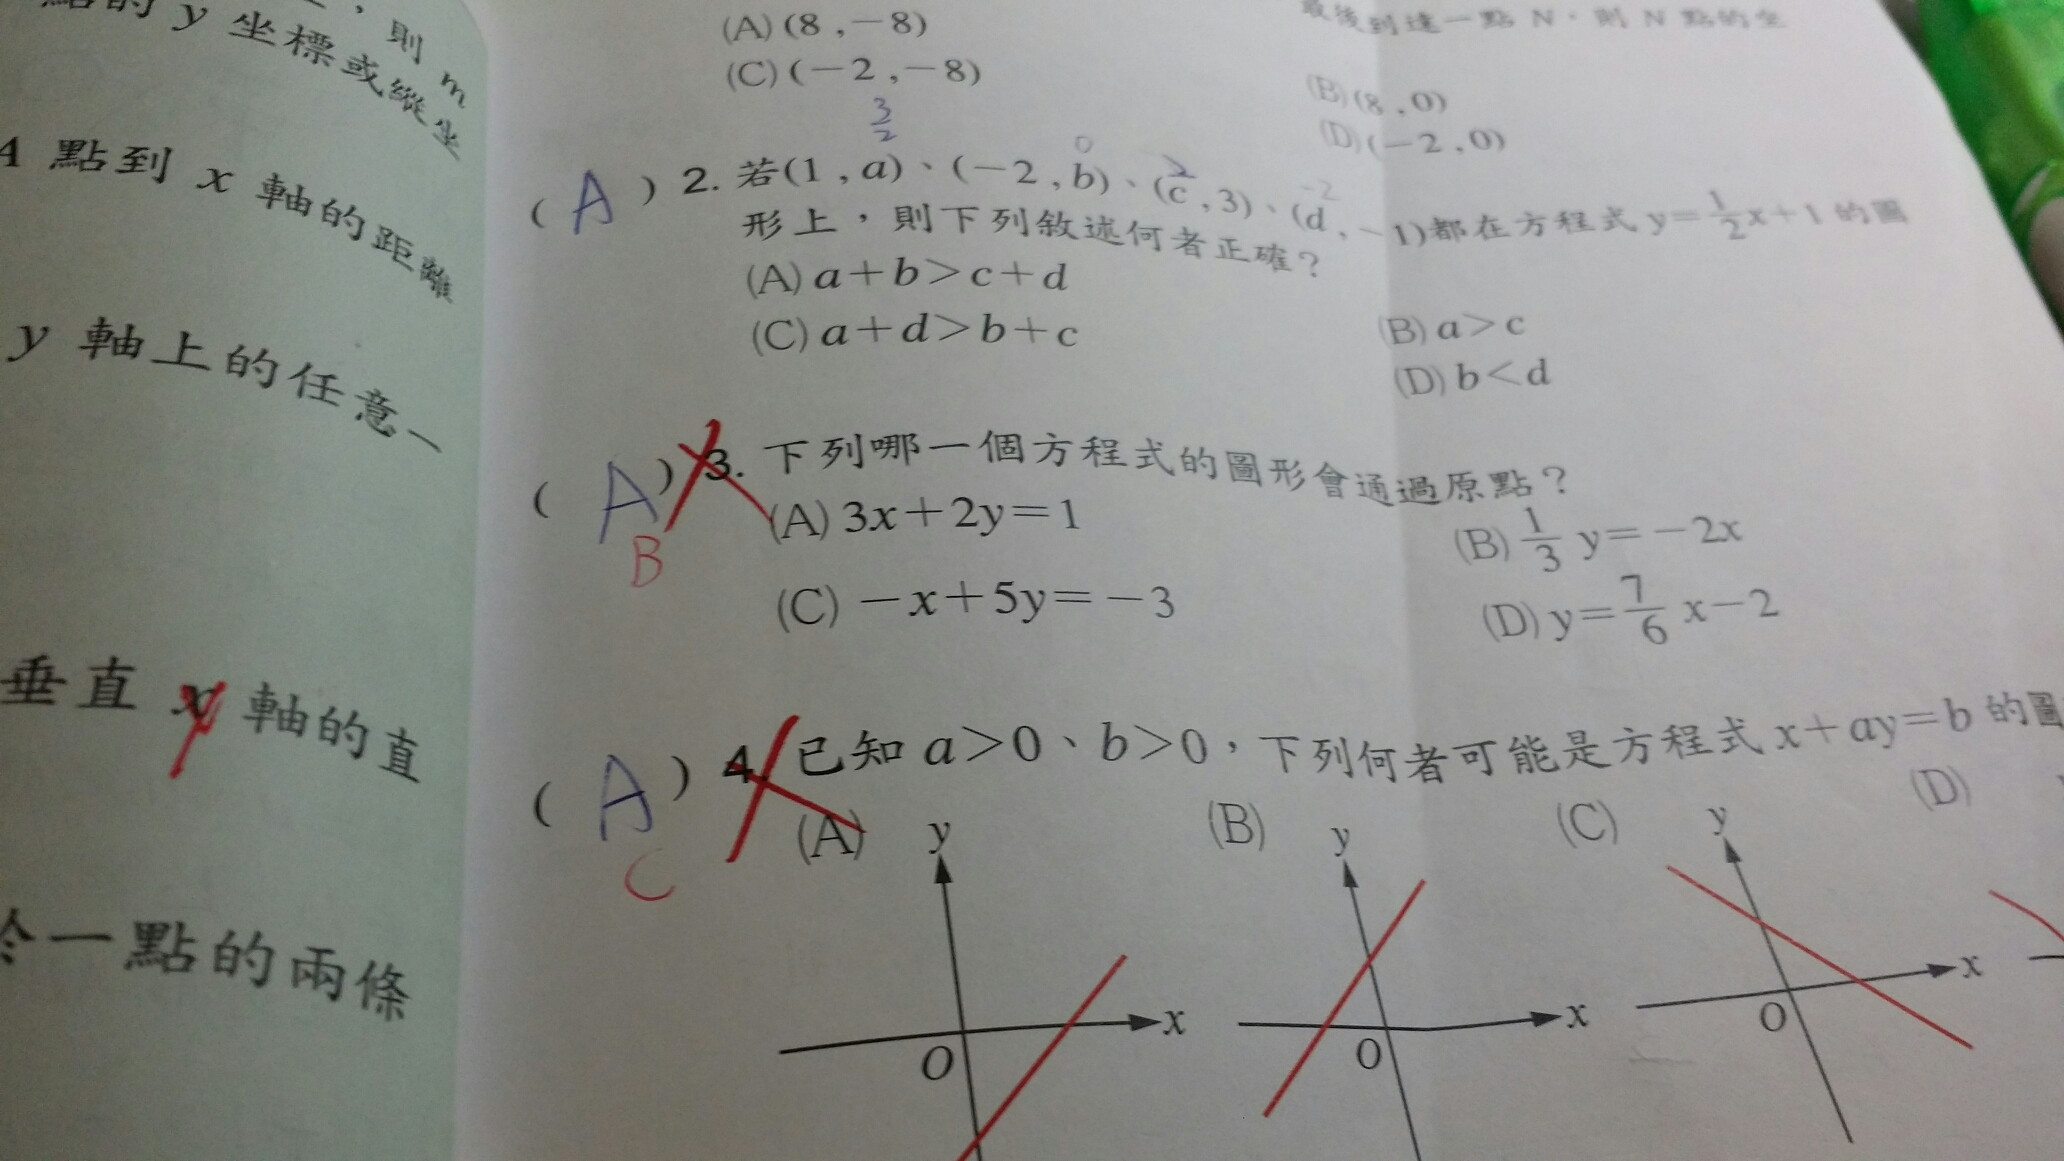 則 m
點的 y 坐標或縱坐
4 點到 x 軸的距離
y 軸上的任意一
垂直 x 軸的直
y
一點的兩條
(A) (8 , -8)
(C) (-2 , -8)
最後到達一點 N,則 N 點的坐
(B) (8 , 0)
(D) (-2 , 0)
3/2 0 2 -2
( A ) 2. 若(1 , a)、(-2 , b)、(c , 3)、(d , -1)都在方程式 y=1/2x+1 的圖
形上,則下列敘述何者正確?
(A) a+b>c+d
(B) a>c
(C) a+d>b+c
(D) b<d
( A ) 3. 下列哪一個方程式的圖形會通過原點?
B
(A) 3x+2y=1
(B) 1/3 y=-2x
(C) -x+5y=-3
(D) y=7/6 x-2
( A ) 4. 已知 a>0、b>0,下列何者可能是方程式 x+ay=b 的圖
C
(A) (B) (C) (D)
y y y
x x x
O O O